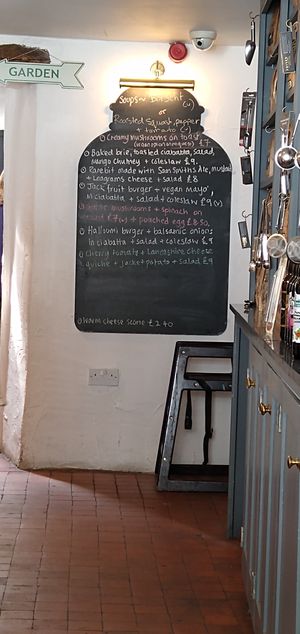 GARDEN
Soups
or
Roasted Squash, pepper
+ tomato (v)
Creamy mushrooms on toast
£7
Baked brie, toasted ciabatta, salad,
Mango Chutney + coleslaw £9.
Rarebit made with Sam Smiths Ale, mustard
+ cheese + salad £8
Jack fruit burger + vegan mayo,
in ciabatta + salad + coleslaw £9 (v)
mushrooms + spinach on
£7 (v) + poached egg £8.50
Halloumi burger + balsamic onions
in ciabatta + salad + coleslaw £9
Cherry tomato + Lancashire cheese
quiche + jacket potato + salad £9
Warm cheese scone £2.40